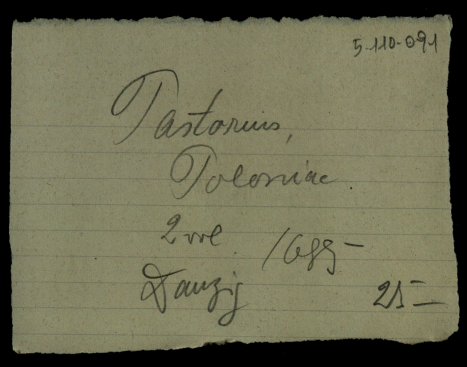 5-110-091
Pastorius,
Poloniae.
2 vol. 1685
Danzig
25—